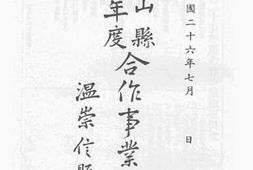 國二十六年七月　日
山縣
年度
合作事業
温崇信